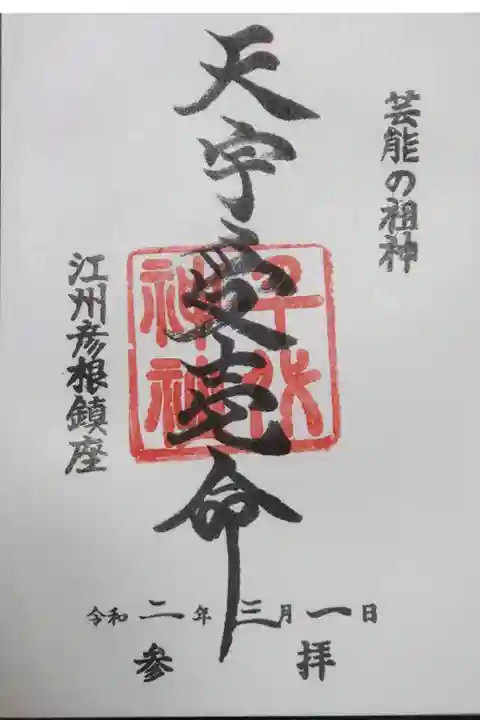 芸能の祖神
天宇受売命
千代
神社
江州彦根鎮座
令和二年三月一日
参拝